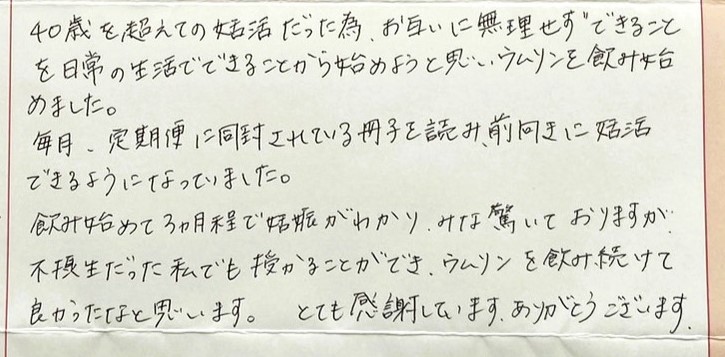 40歳を超えての妊活だった為、お互いに無理せずできること
を日常の生活でできることから始めようと思い、ウムリンを飲み始
めました。
毎月、定期便に同封されている冊子を読み、前向きに妊活
できるようになっていました。
飲み始めて3ヵ月程で妊娠がわかり、みな驚いておりますが、
不摂生だった私でも授かることができ、ウムリンを飲み続けて
良かったなと思います。 とても感謝しています。ありがとうございます。